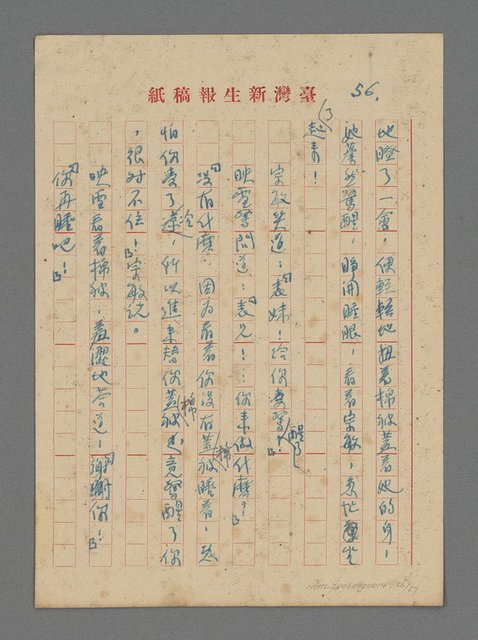 臺灣新生報稿紙
56.
她瞪了一會，便輕輕地扭着棉被蓋着她的身，
她驀然驚醒，睜開睡眼，看着宗敏，急忙坐
了起來！
宗敏笑道：「表妹！給你驚醒了」。
映雪驚問道：「表兄！…你來做什麼？」
「沒有什麼，因為看着你沒有蓋棉被睡着，恐
怕你受了冷，所以進來替你蓋棉被，竟驚醒了你
，很对不住！」宗敏說。
映雪看着棉被，羞澀地答道：「謝謝你！」
「你再睡吧！」